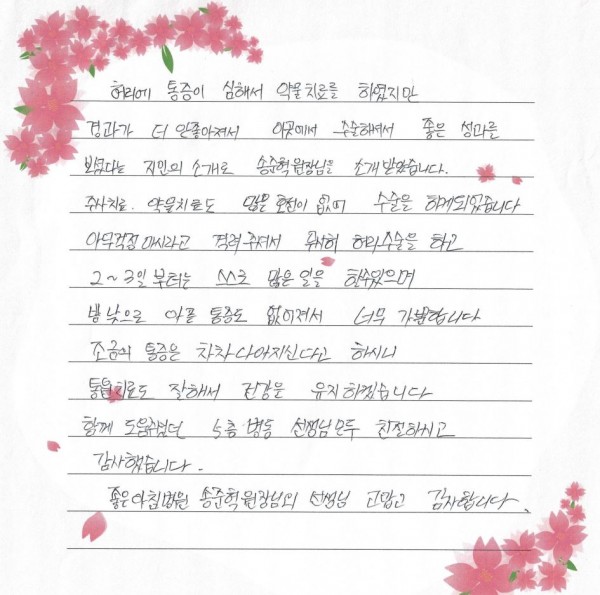 허리에 통증이 심해서 약물치료를 하였지만
경과가 더 안좋아져서 이곳에서 수술해서 좋은 성과를
보셨다는 지인의 소개로 송준혁 원장님을 소개 받았습니다.
주사치료. 약물치료도 많은 호전이 없어 수술을 하게되었습니다
아무걱정 마시라고 격려 주셔서 무사히 허리수술을 하고
2~3일 부터는 스스로 많은 일을 할수있으며
밤낮으로 아픈 통증도 없어져서 너무 가볍습니다
조금의 통증은 차차 나아지신다고 하시니
통원치료도 잘해서 건강을 유지하겠습니다
함께 도움주셨던 5층 병동 선생님모두 친절하시고
감사했습니다.
좋은아침병원 송준혁 원장님의 선생님 고맙고 감사합니다.